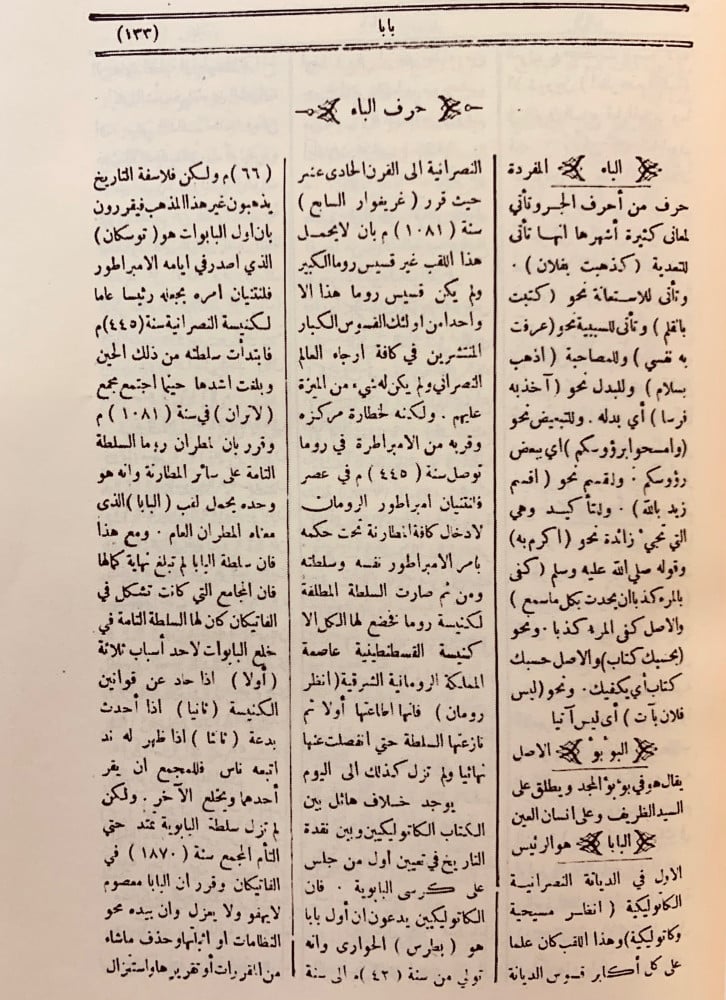 بابا
(١٣٣)
حرف الباء
الباء المفردة
حرف من أحرف الجر وتأتي
لمعاني كثيرة أشهرها انها تأتى
للتعدية (كذهبت بفلان) ٠
وتأتى للاستعانة نحو (كتبت
بالقلم) وتأتى للسببية نحو (عرفت
به نفسي) وللمصاحبة (اذهب
بسلام) وللبدل نحو (آخذ به
فرسا) أي بدله ٠ وللتبعيض نحو
(وامسحوا برؤوسكم) اي ببعض
رؤوسكم ٠ وللقسم نحو (اقسم
زيد بالله) ٠ وللتأكيد وهي
التي تجيء زائدة نحو (اكرم به)
وقوله صلى الله عليه وسلم (كفى
بالمرء كذبا ان يحدث بكل ماسمع)
والاصل كفى المرء كذبا ٠ ونحو
(بحسبك كتاب) والاصل حسبك
كتاب أي يكفيك ٠ ونحو (ليس
فلان بآت) أي ليس آتيا
البؤبؤ الاصل
يقال هو في بؤبؤ المجد ويطلق على
السيد الظريف وعلى انسان العين
البابا هو الرئيس
الاول في الديانة النصرانية
الكاثوليكية (انظر مسيحية
وكاثوليكية) وهذا اللقب كان علما
على كل أكابر قسوس الديانة
النصرانية الى القرن الحادى عشر
حيث قرر (غريغوار السابع)
سنة (١٠٨١) م بان لايحمل
هذا اللقب غير قسيس روما الكبير
ولم يكن قسيس روما هذا الا
واحدا من اولئك القسوس الكبار
المنتشرين في كافة ارجاء العالم
النصراني ولم يكن له شيء من الميزة
عليهم ٠ ولكنه لخطارة مركزه
وقربه من الامبراطرة في روما
توصل سنة (٤٤٥) م في عصر
فالنتنيان امبراطور الرومان
لادخال كافة المطارنة تحت حكمه
بامر الامبراطور نفسه وسلطته
ومن ثم صارت السلطة المطلقة
لكنيسة روما تخضع لها الكل الا
كنيسة القسطنطينية عاصمة
المملكة الرومانية الشرقية (انظر
رومان) فانها اطاعتها أولا ثم
نازعتها السلطة حتي انفصلت عنها
نهائيا ولم تزل كذلك الى اليوم
يوجد خلاف هائل بين
الكتاب الكاثوليكيين وبين نقدة
التاريخ في تعيين أول من جلس
على كرسى البابوية ٠ فان
الكاثوليكيين يدعون ان أول بابا
هو (بطرس) الحوارى وانه
تولي من سنة (٤٢) م الى سنة
(٦٦) م ولكن فلاسفة التاريخ
يذهبون غير هذا المذهب فيقررون
بان اول البابوات هو (توسكان)
الذي اصدر في ايامه الامبراطور
فلنتنيان امره بجعله رئيسا عاما
لكنيسة النصرانية سنة (٤٤٥) م
فابتدأت سلطته من ذلك الحين
وبلغت اشدها حينما اجتمع مجمع
(لاتران) في سنة (١٠٨١) م
وقرر بان لمطران روما السلطة
التامة على سائر المطارنة وانه هو
وحده يحمل لقب (البابا) الذى
معناه المطران العام ٠ ومع هذا
فان سلطة البابا لم تبلغ نهاية كمالها
فان المجامع التي كانت تشكل في
الفاتيكان كان لها السلطة التامة في
خلع البابوات لاحد أسباب ثلاثة
(أولا) اذا حاد عن قوانين
الكنيسة (ثانيا) اذا أحدث
بدعة (ثالثا) اذا ظهر له ند
اتبعه ناس فللمجمع ان يقر
أحدهما ويخلع الآخر ٠ ولكن
لم تزل سلطة البابوية تمتد حتي
التأم المجمع سنة (١٨٧٠) في
الفاتيكان وقرر ان البابا معصوم
لايهفو ولا يعزل وان بيده محو
النظامات او اثباتها وحذف ماشاء
من المقررات أو تقريرها واستنزال